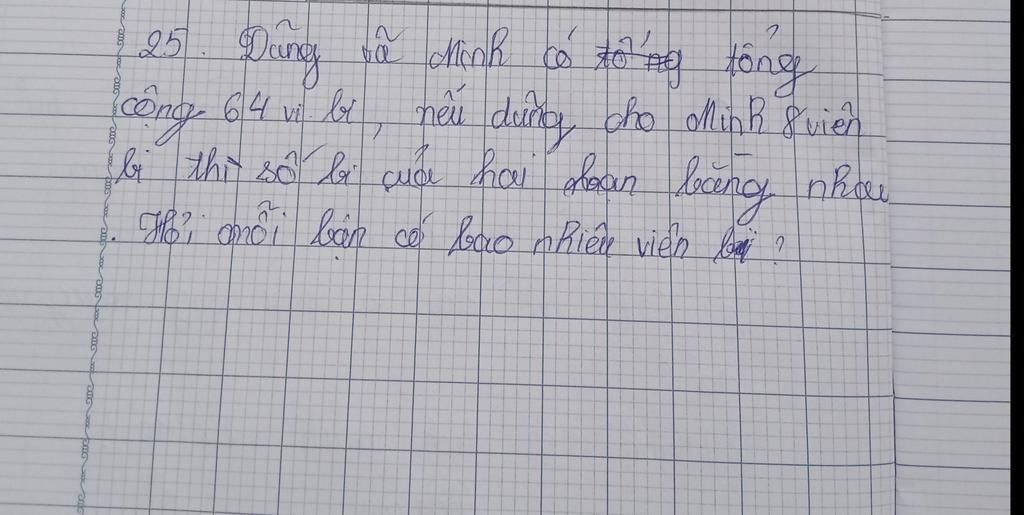 25. Dũng và Minh có tổng tổng
cộng 64 vi bi, nếu dũng cho Minh 8 viên
bi thì số bi của hai bạn bằng nhau
. Hỏi mỗi bạn có bao nhiêu viên bi?